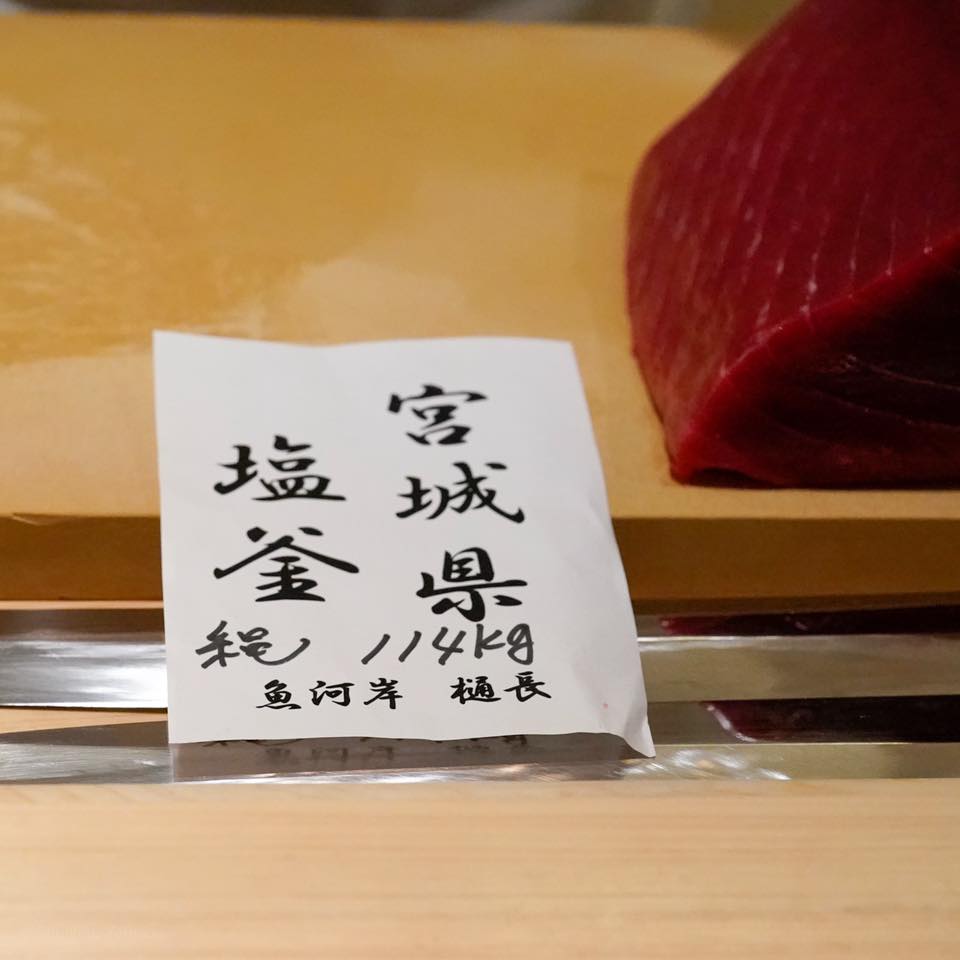 宮城県
塩釜
縄 114kg
魚河岸 樋長